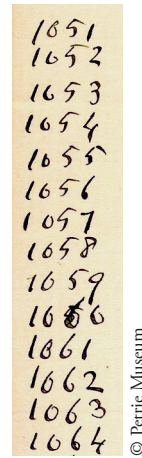 1051
1052
1053
1054
1055
1056
1057
1058
1059
1060
1061
1062
1063
1064
© Petrie Museum